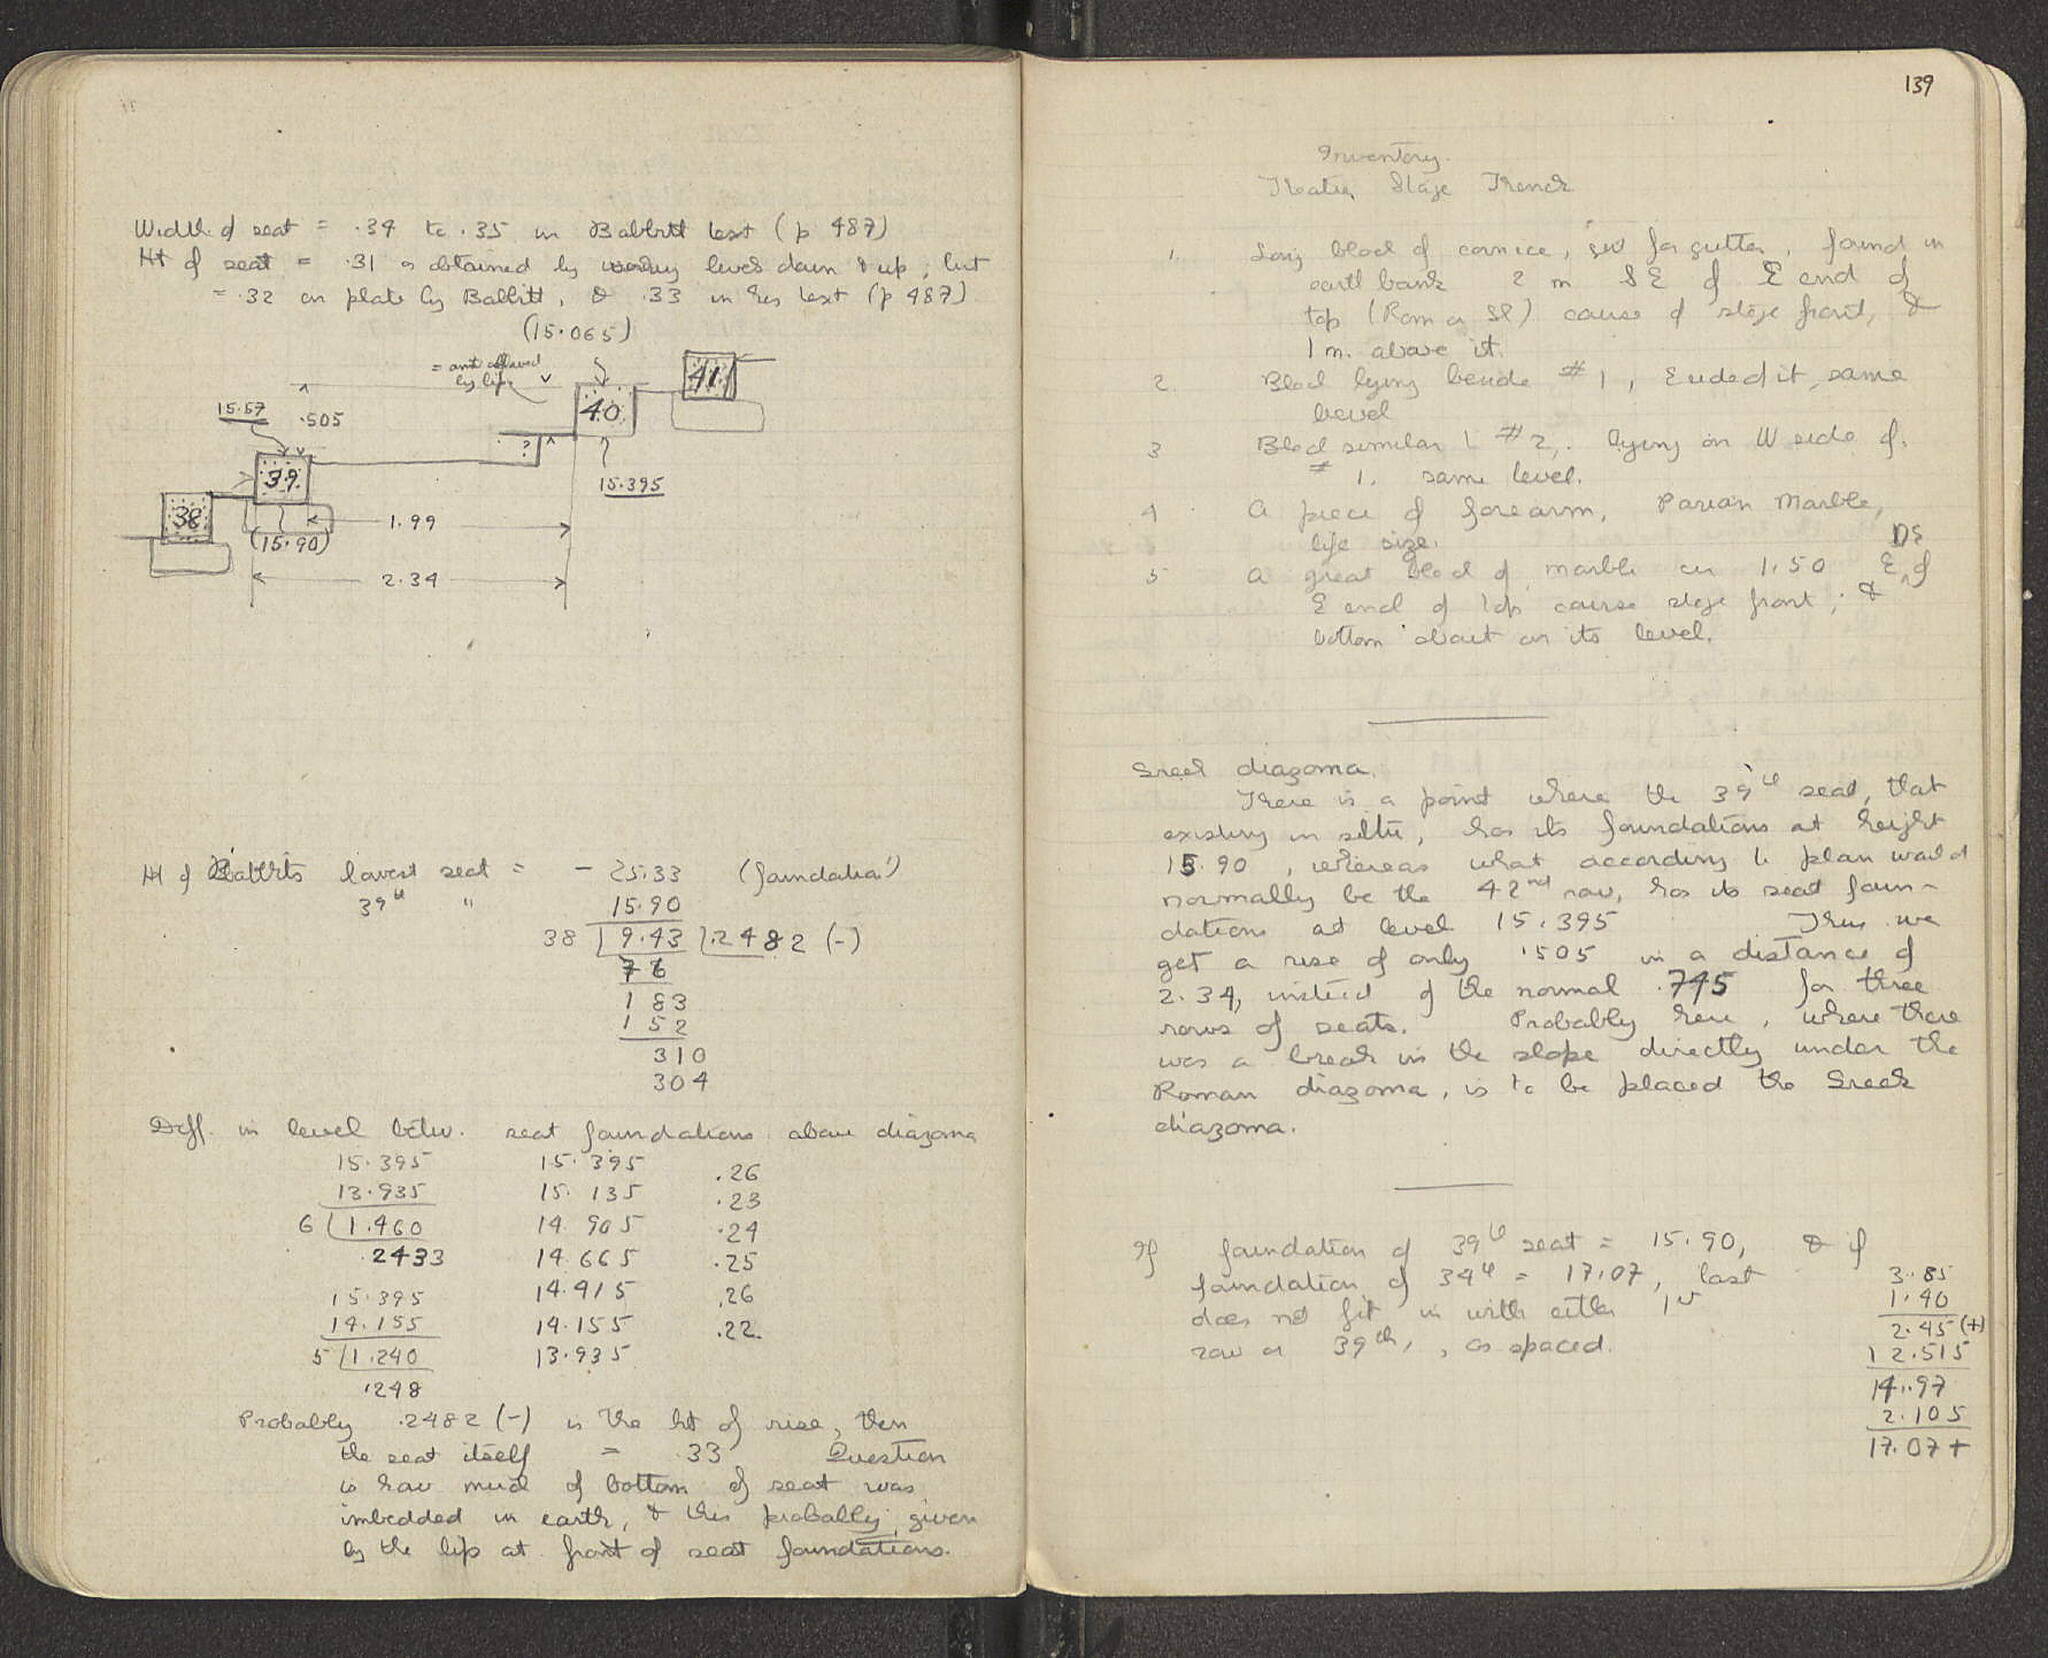 Width of seat = .34 to .35 in Babbitt text (p 487)
Ht of seat = .31 as obtained by level down & up, but
= .32 on plate by Babbitt, & .33 in his text (p 487)
(15.065)
= amt allowed
by lip
41
40
15.57
.505
?
39
15.395
38
1.99
(15.90)
2.34
Ht of Babbitts lowest seat = - 25.33 (foundation)
39th " 15.90
38 | 9.43 | .2482 (-)
76
1 83
1 52
310
304
Diff. in level betw. seat foundations above diazoma
15.395 15.395 .26
13.935 15.135 .23
6 | 1.460 14.905 .24
.2433 14.665 .25
15.395 14.415 .26
14.155 14.155 .22
5 | 1.240 13.935
.248
Probably .2482 (-) is the ht of rise, then
the seat itself = .33 Question
is how much of bottom of seat was
imbedded in earth, & this probably given
by the lip at front of seat foundations.
139
Inventory.
Theater Stage Trench
1. Long block of cornice, for gutter, found in
earth bank 2 m SE of E end of
top (Rom or Gk) course of stage front, &
1 m. above it.
2. Block lying beside # 1, E side of it, same
level
3 Block similar to # 2, lying on W side of
# 1. same level.
4 A piece of forearm, Parian Marble,
life size.
5 A great block of marble 1.50 E of
E end of top course stage front; &
bottom about on its level.
Greek diazoma.
There is a point where the 39th seat, that
existing in situ, has its foundations at height
15.90, whereas what according to plan would
normally be the 42nd row, has its seat foun-
dations at level 15.395 Thus we
get a rise of only .505 in a distance of
2.34, instead of the normal .745 for three
rows of seats. Probably here, where there
was a break in the slope directly under the
Roman diazoma, is to be placed the Greek
diazoma.
If foundation of 39th seat = 15.90, & if
foundation of 34th = 17.07, last
does not fit in with either 1st
row or 39th, as spaced.
3.85
1.40
2.45 (+)
12.515
14.97
2.105
17.07 +